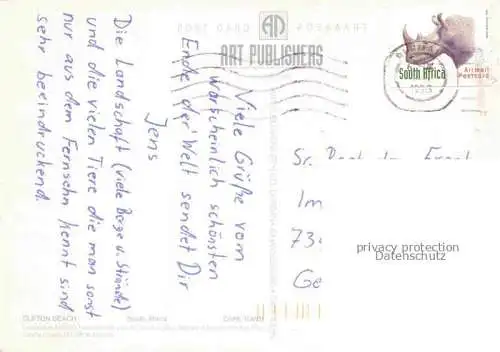 Viele Grüße vom
warscheinlich schönsten
Ende der Welt sendet Dir
Jens
Die Landschaft (viele Berge u. Strände)
und die vielen Tiere die man sonst
nur aus dem Fernsehn kennt sind
sehr beeindruckend.
ART PUBLISHERS
South Africa
Airmail
Postcard
Im
Ge
privacy protection
Datenschutz
CLIFTON BEACH
South Africa
CAPE TOWN